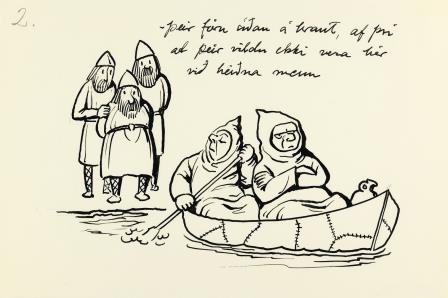 2.
- þeir fóru síðan á braut, af því
at þeir vildu ekki vera hér
við heiðna menn